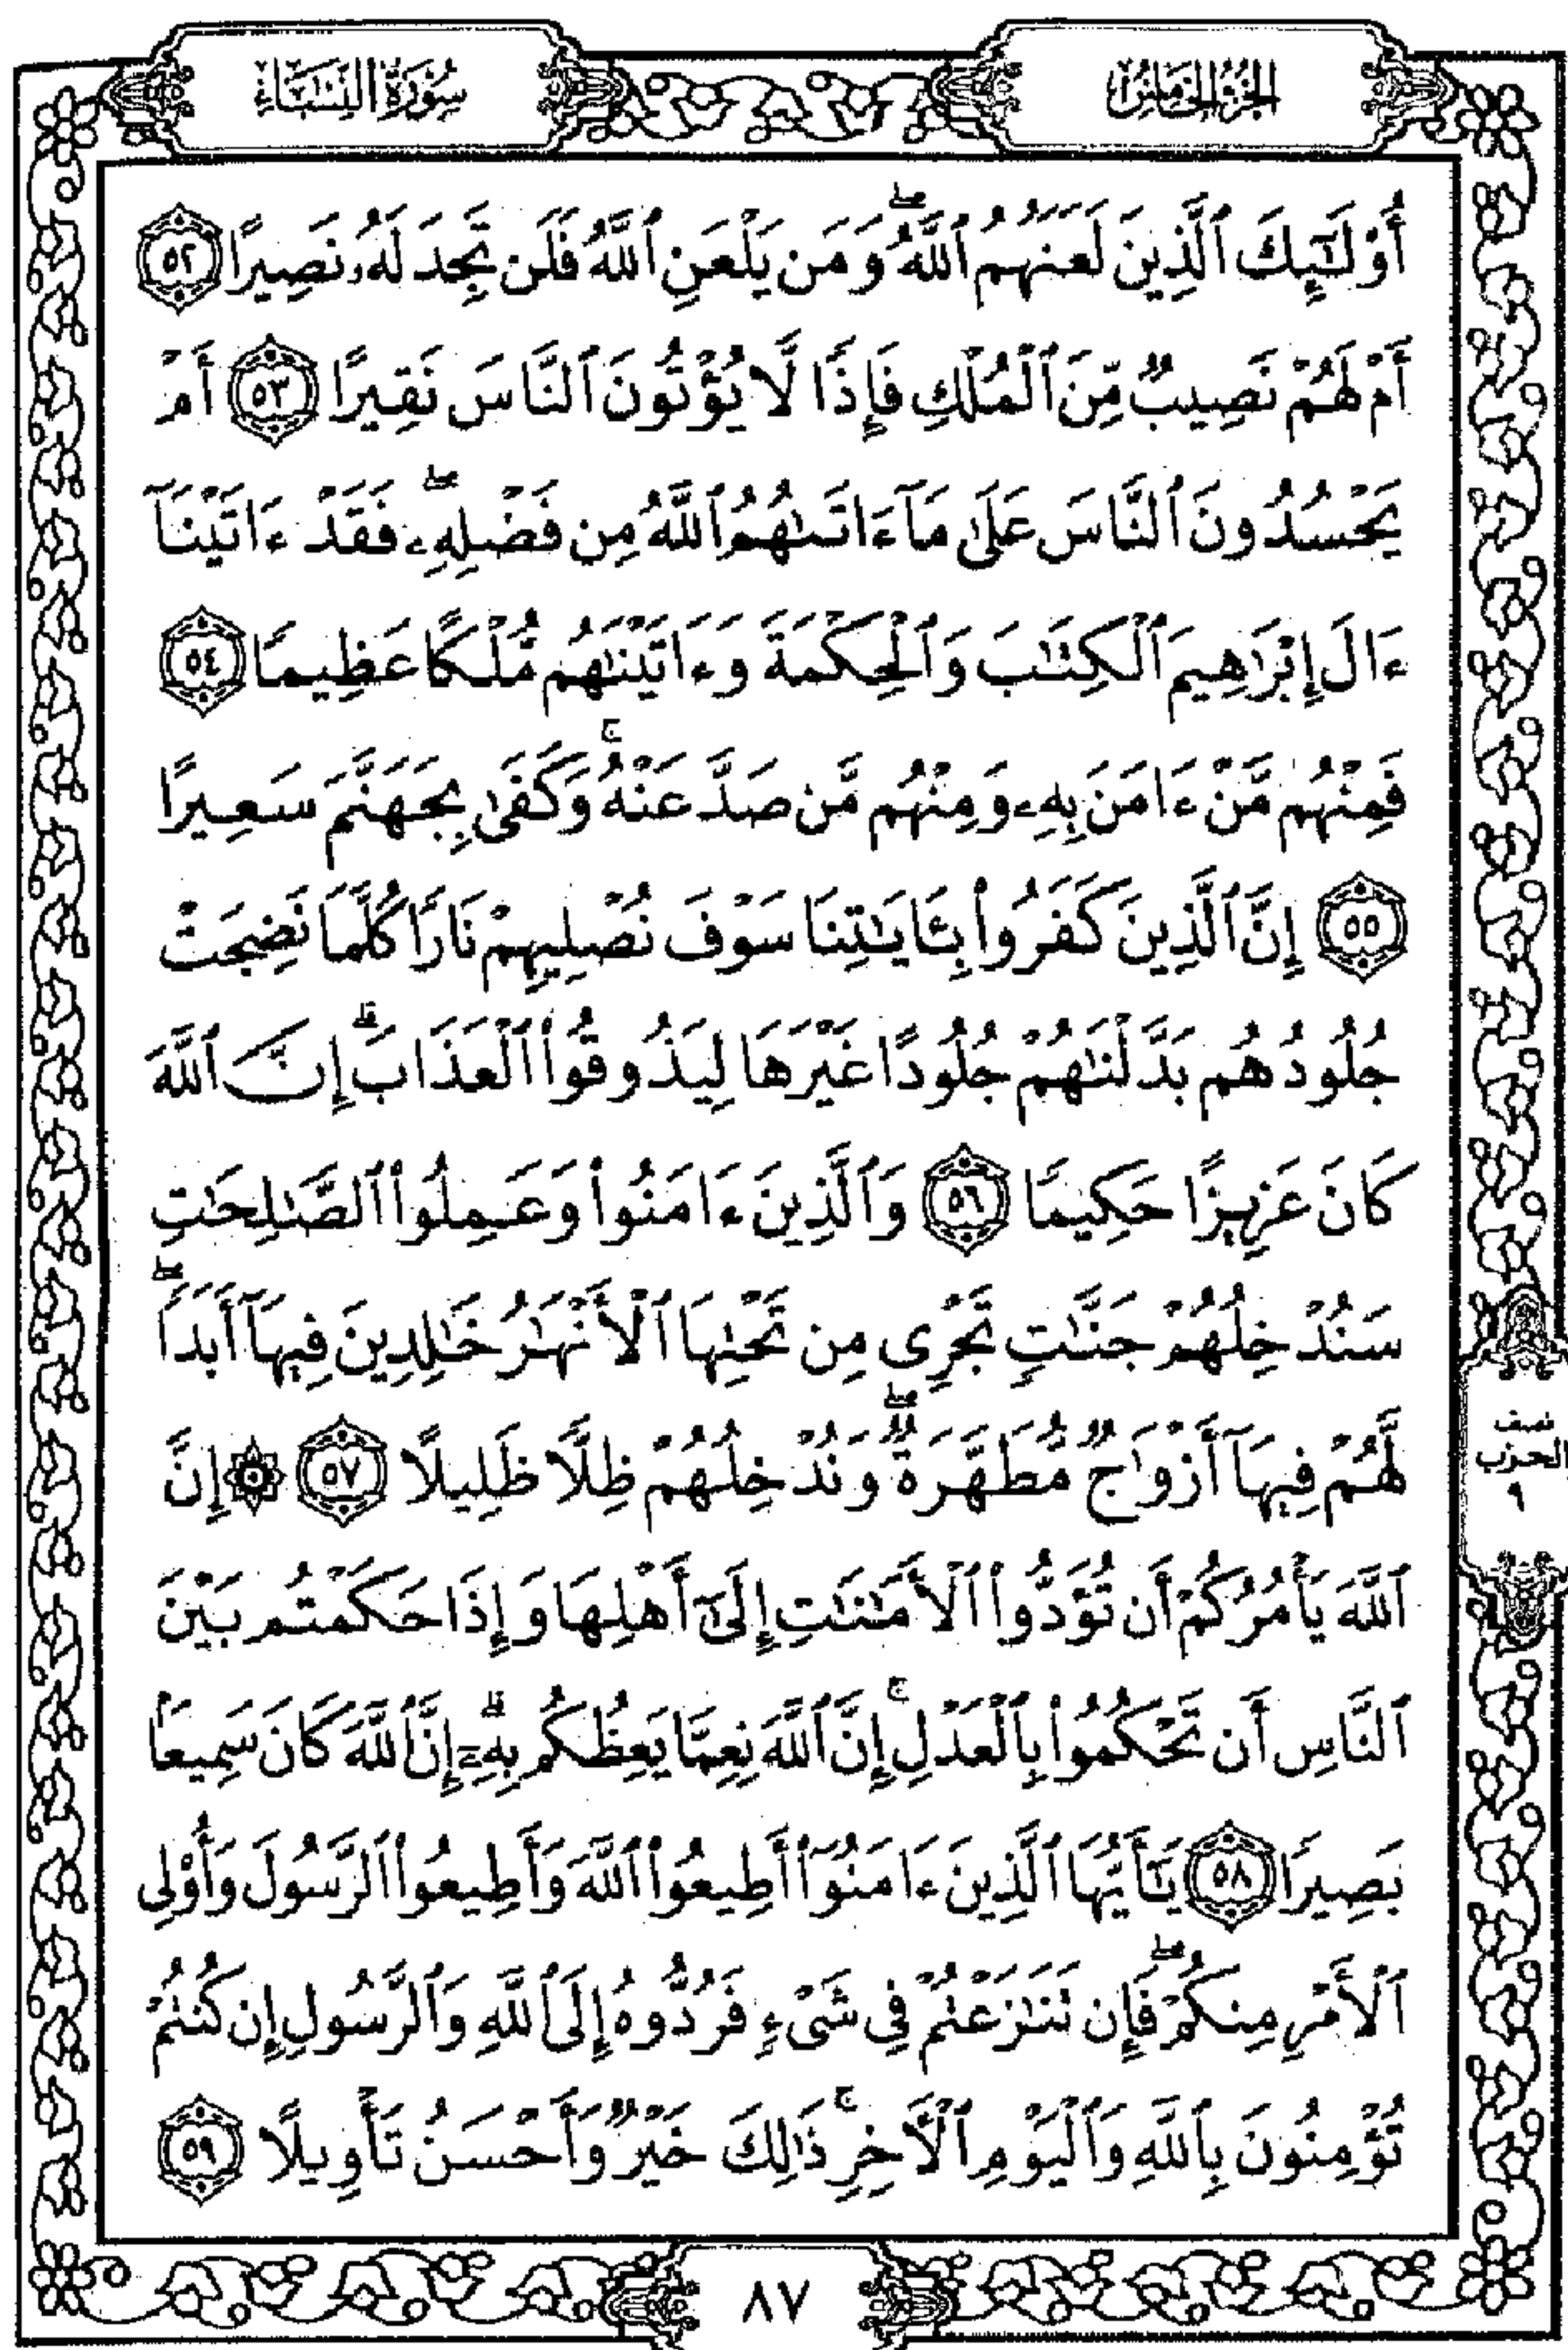 الجزء الخامس
سورة النساء
أُوْلَٰٓئِكَ ٱلَّذِينَ لَعَنَهُمُ ٱللَّهُۖ وَمَن يَلْعَنِ ٱللَّهُ فَلَن تَجِدَ لَهُۥ نَصِيرًا ٥٢
أَمْ لَهُمْ نَصِيبٌ مِّنَ ٱلْمُلْكِ فَإِذًا لَّا يُؤْتُونَ ٱلنَّاسَ نَقِيرًا ٥٣ أَمْ
يَحْسُدُونَ ٱلنَّاسَ عَلَىٰ مَآ ءَاتَىٰهُمُ ٱللَّهُ مِن فَضْلِهِۦۖ فَقَدْ ءَاتَيْنَآ
ءَالَ إِبْرَٰهِيمَ ٱلْكِتَٰبَ وَٱلْحِكْمَةَ وَءَاتَيْنَٰهُم مُّلْكًا عَظِيمًا ٥٤
فَمِنْهُم مَّنْ ءَامَنَ بِهِۦ وَمِنْهُم مَّن صَدَّ عَنْهُۚ وَكَفَىٰ بِجَهَنَّمَ سَعِيرًا
٥٥ إِنَّ ٱلَّذِينَ كَفَرُوا۟ بِـَٔايَٰتِنَا سَوْفَ نُصْلِيهِمْ نَارًا كُلَّمَا نَضِجَتْ
جُلُودُهُم بَدَّلْنَٰهُمْ جُلُودًا غَيْرَهَا لِيَذُوقُوا۟ ٱلْعَذَابَۗ إِنَّ ٱللَّهَ
كَانَ عَزِيزًا حَكِيمًا ٥٦ وَٱلَّذِينَ ءَامَنُوا۟ وَعَمِلُوا۟ ٱلصَّٰلِحَٰتِ
سَنُدْخِلُهُمْ جَنَّٰتٍ تَجْرِى مِن تَحْتِهَا ٱلْأَنْهَٰرُ خَٰلِدِينَ فِيهَآ أَبَدًاۖ
لَّهُمْ فِيهَآ أَزْوَٰجٌ مُّطَهَّرَةٌۖ وَنُدْخِلُهُمْ ظِلًّا ظَلِيلًا ٥٧ ۞ إِنَّ
نصف
الحزب
٩
ٱللَّهَ يَأْمُرُكُمْ أَن تُؤَدُّوا۟ ٱلْأَمَٰنَٰتِ إِلَىٰٓ أَهْلِهَا وَإِذَا حَكَمْتُم بَيْنَ
ٱلنَّاسِ أَن تَحْكُمُوا۟ بِٱلْعَدْلِۚ إِنَّ ٱللَّهَ نِعِمَّا يَعِظُكُم بِهِۦٓۗ إِنَّ ٱللَّهَ كَانَ سَمِيعًۢا
بَصِيرًا ٥٨ يَٰٓأَيُّهَا ٱلَّذِينَ ءَامَنُوٓا۟ أَطِيعُوا۟ ٱللَّهَ وَأَطِيعُوا۟ ٱلرَّسُولَ وَأُو۟لِى
ٱلْأَمْرِ مِنكُمْۖ فَإِن تَنَٰزَعْتُمْ فِى شَىْءٍ فَرُدُّوهُ إِلَى ٱللَّهِ وَٱلرَّسُولِ إِن كُنتُمْ
تُؤْمِنُونَ بِٱللَّهِ وَٱلْيَوْمِ ٱلْأَخِرِۚ ذَٰلِكَ خَيْرٌ وَأَحْسَنُ تَأْوِيلًا ٥٩
٨٧